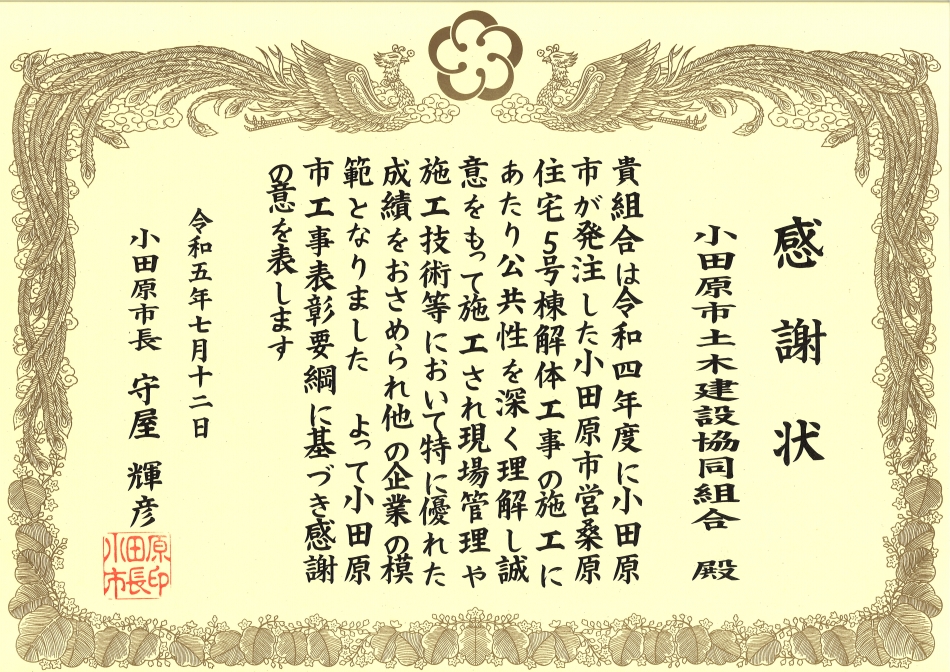 感謝状
小田原市土木建設協同組合 殿
貴組合は令和四年度に小田原
市が発注した小田原市営桑原
住宅5号棟解体工事の施工に
あたり公共性を深く理解し誠
意をもって施工され現場管理や
施工技術等において特に優れた
成績をおさめられ他の企業の模
範となりました よって小田原
市工事表彰要綱に基づき感謝
の意を表します
令和五年七月十二日
小田原市長 守屋 輝彦
小田原
市長印